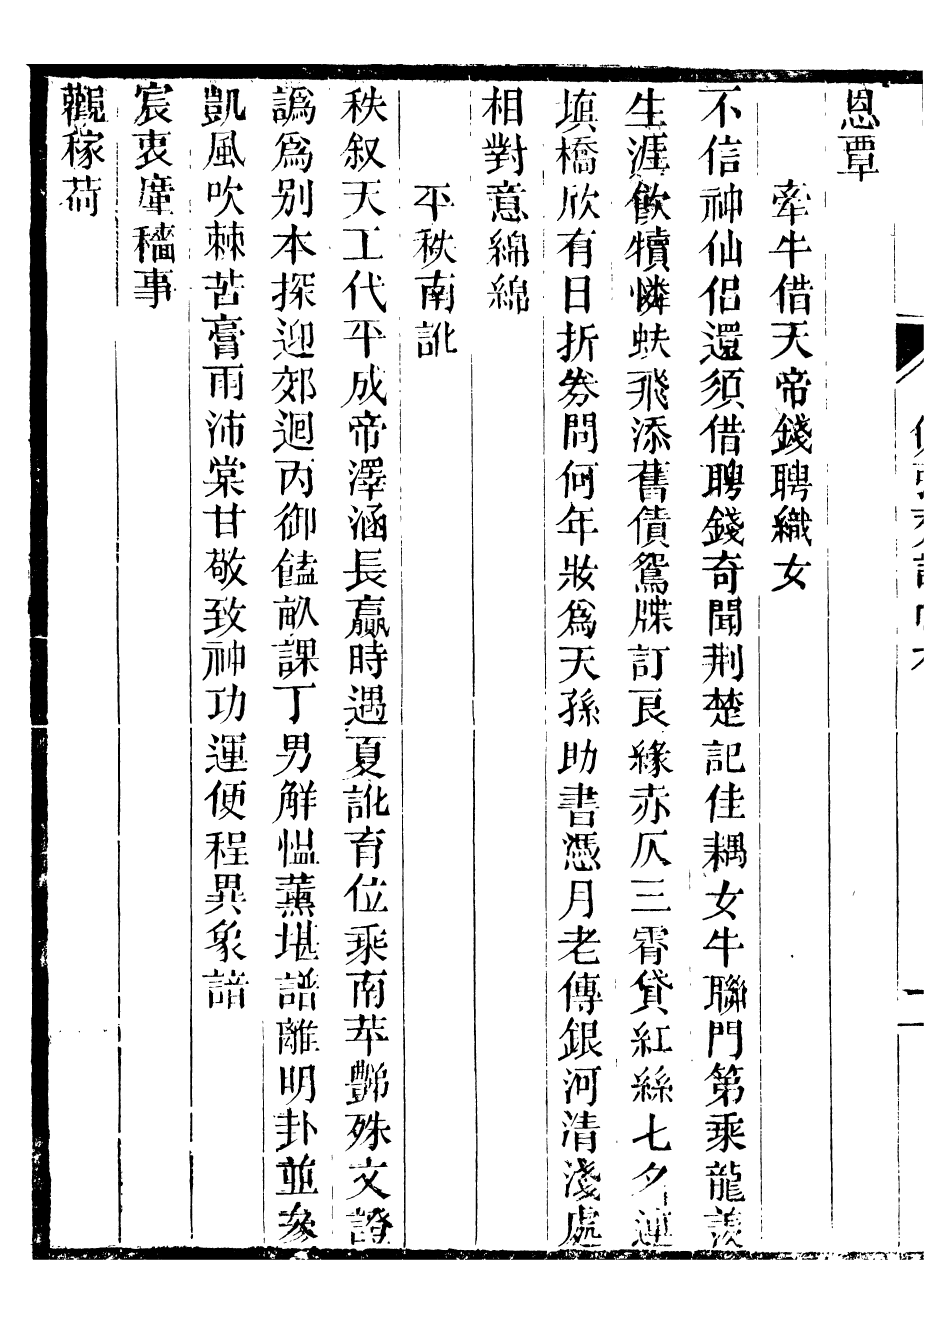 恩覃
牽牛借天帝錢聘織女
不信神仙侶還須借聘錢奇聞荆楚記佳耦女牛聯門第乘龍羨
生涯飲犢憐蚨飛添舊債鴛牒訂良緣赤仄三霄貸紅絲七夕連
填橋欣有日折劵問何年妝爲天孫助書憑月老傳銀河清淺處
相對意綿綿
平秩南訛
秩叙天工代平成帝澤涵長贏時遇夏訛育位乘南苹艷殊文證
譌爲别本探迎郊迴丙御饁畝課丁男解慍薰堪譜離明卦並參
凱風吹棘苦膏雨沛棠甘敬致神功運便程異象諳
宸衷廑穡事
觀稼荷